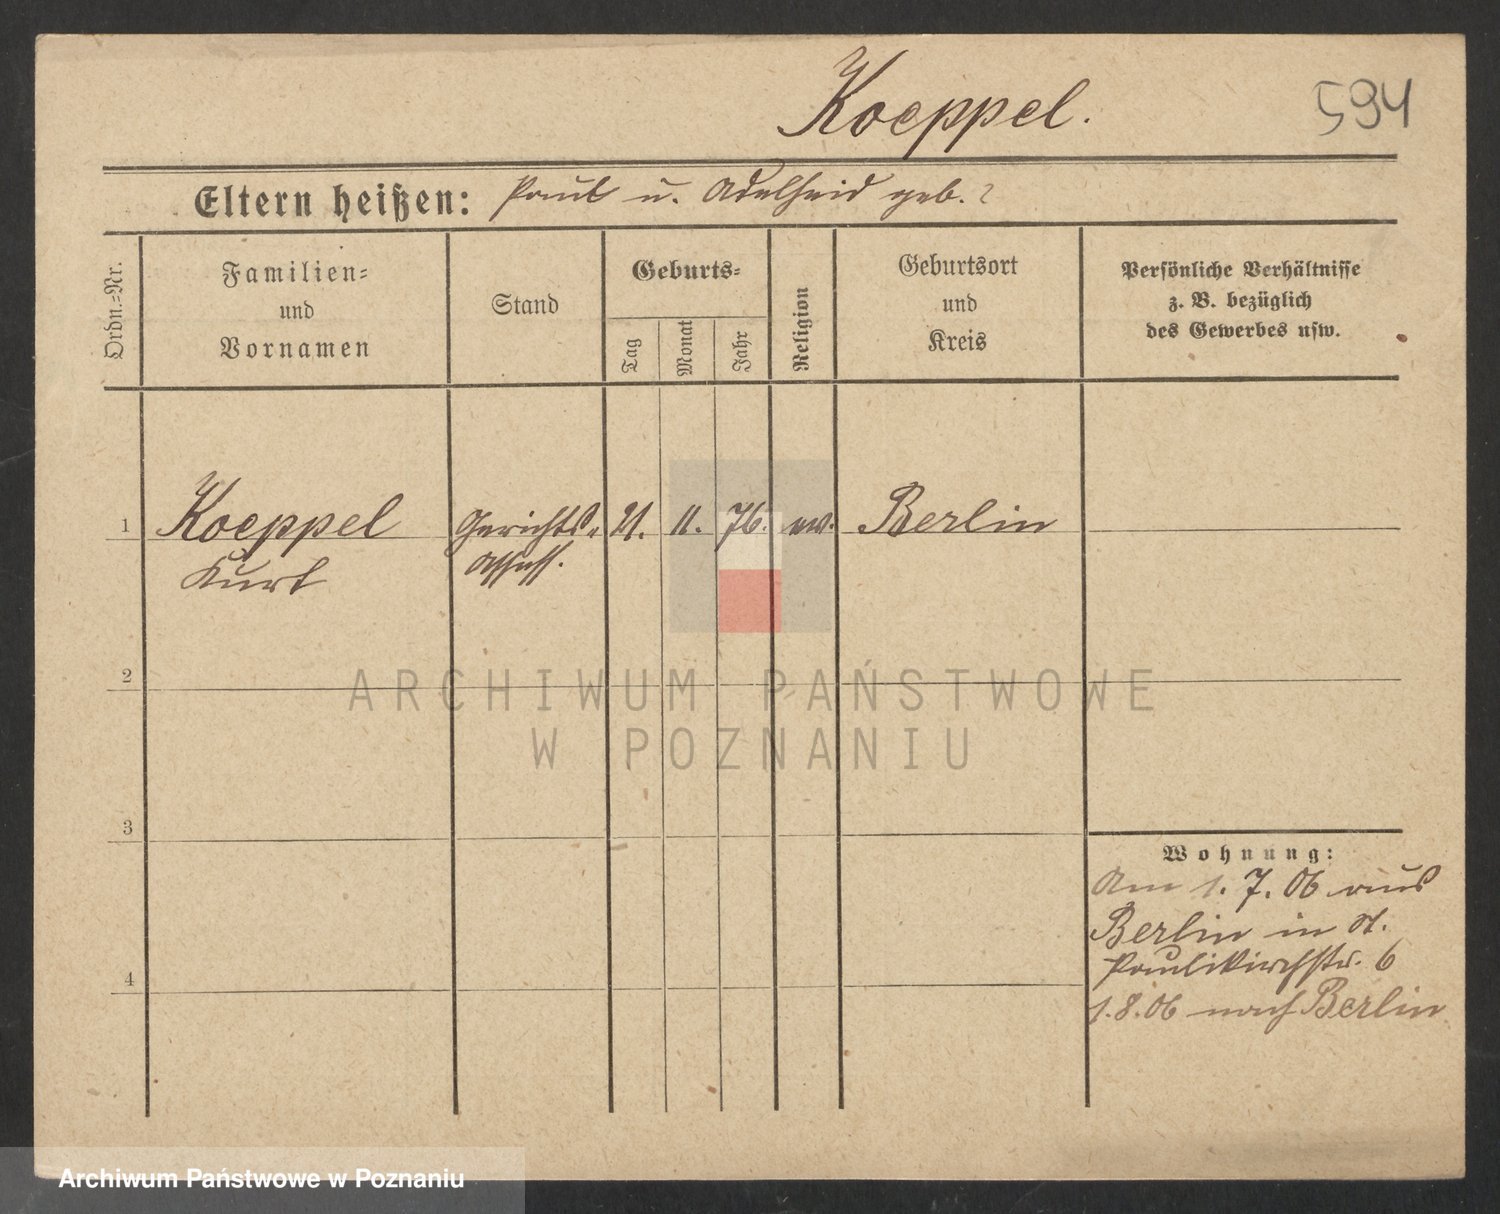 Koeppel.
594
Eltern heißen: Paul u. Adelheid geb. ?
Ordn.-Nr.
Familien-
und
Vornamen
Stand
Geburts-
Tag
Monat
Jahr
Religion
Geburtsort
und
Kreis
Persönliche Verhältnisse
z. B. bezüglich
des Gewerbes usw.
1 Koeppel Gerichts- 21. 11. 76. ev. Berlin
Kurt Assess.
2
ARCHIWUM PAŃSTWOWE
W POZNANIU
3
Wohnung:
Am 1. 7. 06 aus
Berlin in St.
Paulikirchstr. 6
4
1. 8. 06 nach Berlin
Archiwum Państwowe w Poznaniu